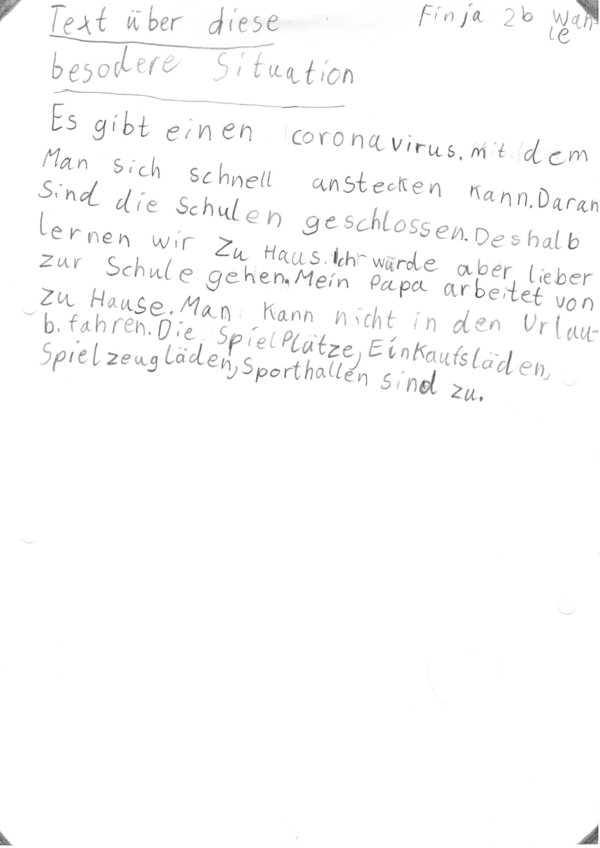 Text über diese
Finja 2b Wah-
le
besodere Situation
Es gibt einen coronavirus. mit dem
Man sich schnell anstecken kann. Daran
Sind die Schulen geschlossen. Deshalb
lernen wir Zu Haus. Ich würde aber lieber
zur Schule gehen. Mein Papa arbeitet von
zu Hause. Man kann nicht in den Urlau-
b. fahren. Die SpielPlätze, Einkaufsläden,
Spielzeugläden, Sporthallen sind zu.